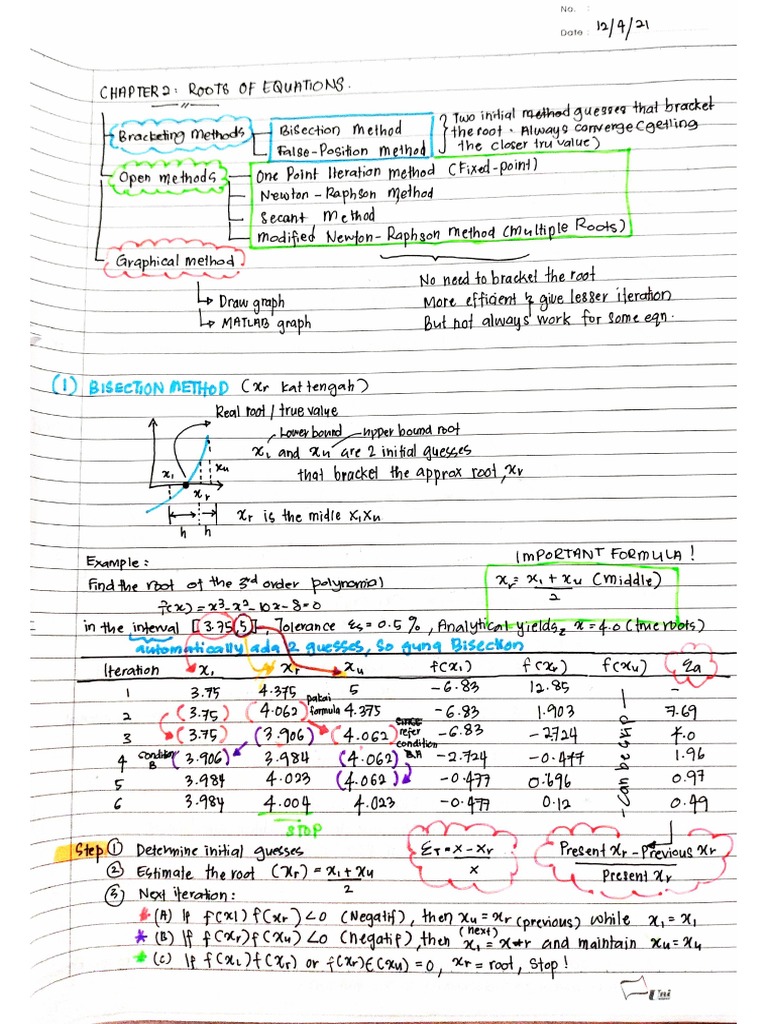 No. :
Date : 12/4/21
CHAPTER 2: ROOTS OF EQUATIONS.
Bracketing methods
Bisection Method
False-Position method
Two initial method guesses that bracket
the root. Always converge (getting
the closer tru value)
Open methods
One Point Iteration method (Fixed-point)
Newton-Raphson Method
Secant Method
Modified Newton-Raphson method (Multiple Roots)
Graphical method
Draw graph
MATLAB graph
No need to bracket the root
More efficient & give lesser iteration
But not always work for some eqn.
(1) BISECTION METHOD (xr kat tengah)
Real root / true value
Lower bound upper bound root
xl and xu are 2 initial guesses
that bracket the approx root, xr
xl xu
xr
h h
xr is the midle xl xu
Example:
IMPORTANT FORMULA!
Find the root of the 3rd order polynomial
xr = xl + xu (Middle)
2
f(x) = x³-x²-10x-8=0
in the interval [3.75, 5], Tolerance εs = 0.5 %, Analytical yields x = 4.0 (true roots)
automatically ada 2 guesses, so guna Bisection
Iteration xl xr xu f(xl) f(xr) f(xu) εa
1 3.75 4.375 5 -6.83 12.85 -
pakai
formula
2 (3.75) (4.062) 4.375 -6.83 1.903 7.69
3 (3.75) (3.906) (4.062) -6.83 -2.724 4.0
refer
condition
B.A
condition
B
4 (3.906) 3.984 (4.062) -2.724 -0.477 1.96
5 3.984 4.023 (4.062) -0.477 0.696 0.97
6 3.984 4.004 4.023 -0.477 0.12 0.49
can be skip
STOP
Step ① Determine initial guesses
② Estimate the root (xr) = xl + xu
2
③ Next iteration:
ετ = x - xr
x
Present xr - Previous xr
Present xr
* (A) If f(xl) f(xr) <0 (Negatif), then xu = xr (previous) while xl = xl
(next)
* (B) If f(xr) f(xu) <0 (negatif), then xl = xr and maintain xu = xu
* (C) If f(xl) f(xr) or f(xr) f(xu) = 0, xr = root, Stop!